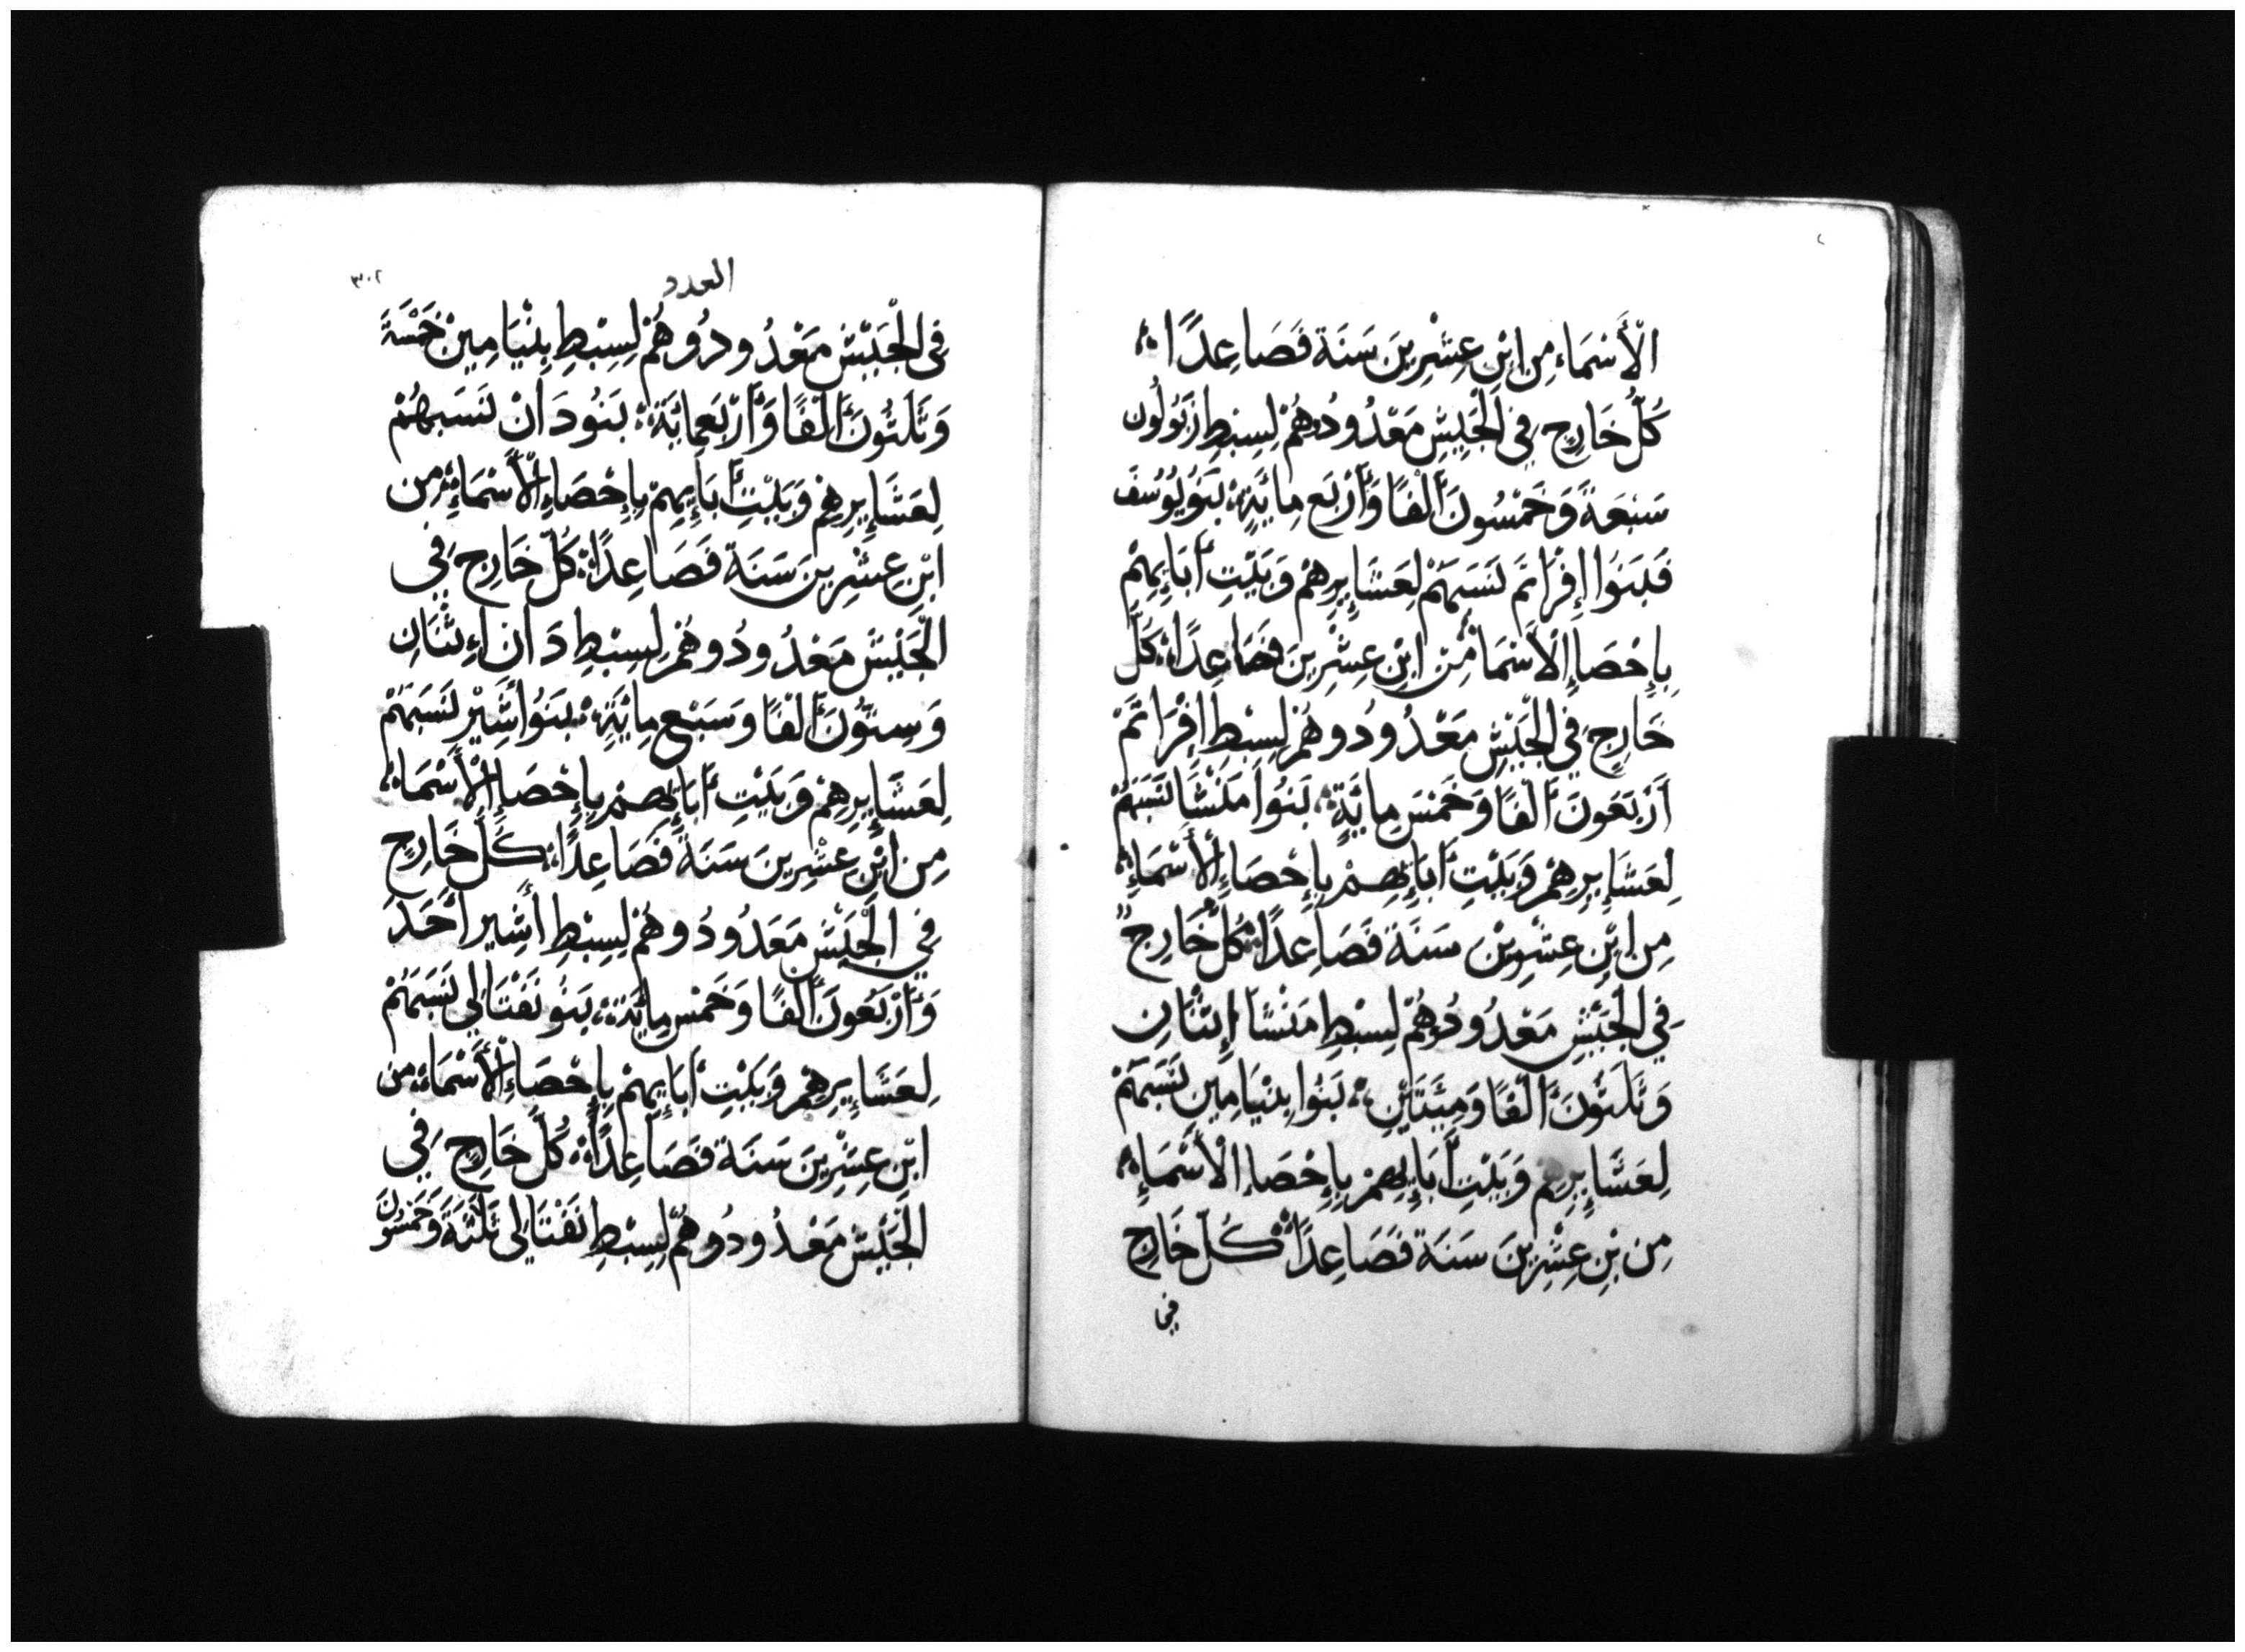 الْأَسْمَاء مِن ابْنِ عِشْرِينَ سَنَة فَصَاعِدًا
كُلُّ خَارِج فِي الْجَيِشِ مَعْدُودُهُمْ لِسِبْطِ زَبُولُون
سَبْعَةً وَخَمْسُونَ أَلْفًا وَأَرْبَع مِائَةٍ بَنَو يُوسُفَ
فَبَنَوا إِفْرَاتَم نَسَبَهُمْ لِعَشَايِرِهِمْ وَبَيْتِ أَبَايِهِمْ
بِإِحْصَاءِ الْأَسْمَا مِنْ ابْنِ عِشْرِينَ فَصَاعِدًا كُلّ
خَارِجِ فِي الْجَيْشِ مَعْدُودُوهُمْ لِسِبْطِ افْرَاتَمْ
أَرْبَعُونَ أَلْفًا وَخَمْسَ مِايَةٍ بَنُوا مَنْشَا نَسَبَهُمْ
لِعَشَايِرِهِمْ وَبَيْتِ أَبَايِهِمْ بِإِحْصَاءِ الْأَسْمَاءِ
مِن ابْنِ عِشْرِيْنَ سَنَةً فَصَاعِدًا كُلُّ خَارِجٌ
فِي الْجَيْشِ مَعْدُودُهُمْ لِسِبْطِ مَنْشَا إِثْنَانِ
وَثَلَثُونَ أَلْفًا وَمِئَتَايْنِ بَنُوا بِنْيَامِينِ نَسَبَهُمْ
لِعَشَايِرِهِمْ وَبَيْتِ أَبَايِهِمْ بِإِحْصَاءِ الْأَسْمَاءِ
مِن بْنِ عِشْرِيْنَ سَنَة فَصَاعِدًا كُلّ خَارِجِ
في
العدد
٣٠٢
فِي الْجَيْشِ مَعْدُودُوهُمْ لِسِبْطِ بِنْيَامِينْ خَمْسَةً
وَثَلَثُونَ أَلْفًا وَأَرْبَعمِائَةً بَنُو دَانْ نَسَبهُمْ
لِعَشَايِرِهِمْ وَبَيْتِ أَبَايِهِمْ بِإِحْصَاءِ الْأَسْمَاءِ مِن
ابْنِ عِشْرِينَ سَنَة فَصَاعِدًا كُلّ خَارِج فِي
الْجَيْشِ مَعْدُودُوهُمْ لِسِبْطِ دَان إِثْنَانِ
وَسِتُّونَ أَلْفًا وَسَبْع مِائَةٍ بَنَوُا أَشِيْر نَسَبَهُمْ
لِعَشَايِرِهِمْ وَبَيْتِ أَبَايِهِمْ بِإِحْصَاءِ الْأَسْمَاء
مِن ابْنِ عِشْرِينَ سَنَةً فَصَاعِدًا كُلّ خَارِجٍ
فِي الْجَيْشِ مَعَدُودُوهُمْ لِسِبْطِ أَشِير أَحَدَ
وَأَرْبَعُونَ أَلْفًا وَخَمْس مِائَة بَنُو نَفْتَالِي نَسَبَهُمْ
لِعَشَايِرِهِمْ وَبَيْتِ أَبَايِهِمْ بِإِحْصَاءِ الْأَسْمَاءِ مِن
ابْنِ عِشْرِينَ سَنَة فَصَاعِدًا كُلّ خَارِجٍ فِي
الْجَيْشِ مَعْدُودُوهُمْ لِسِبْطِ نَفْتَالِي ثَلَثَةً وَخَمْسُونَ